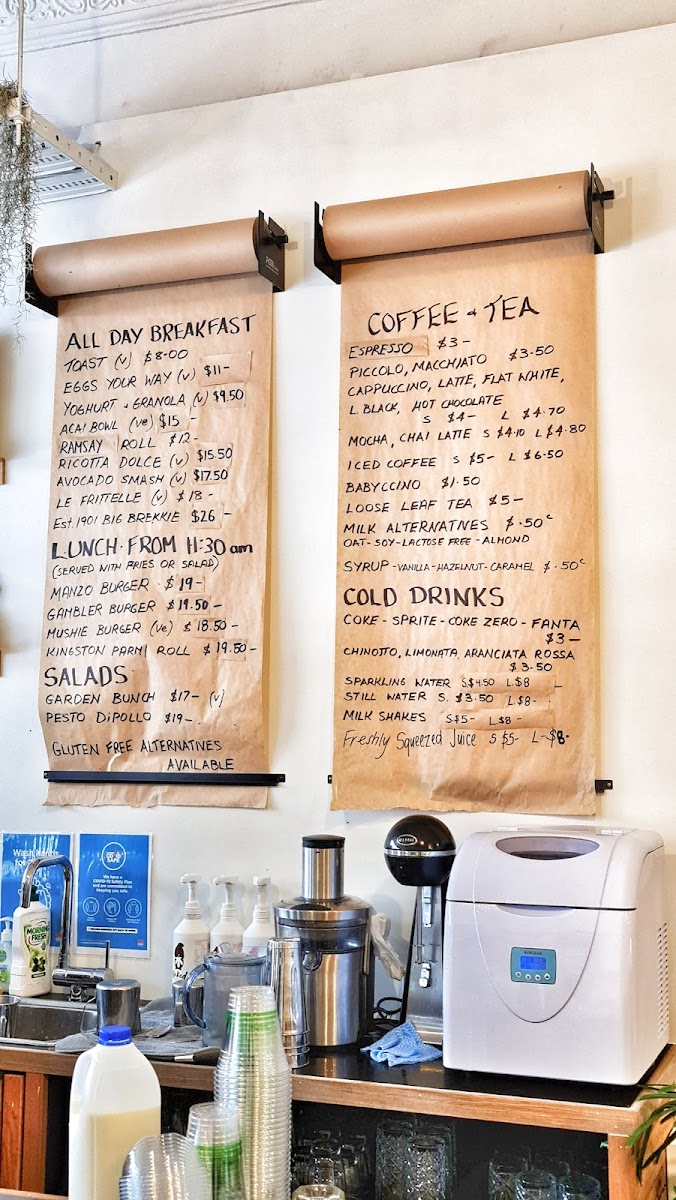 ALL DAY BREAKFAST
TOAST (V) $8-00
EGGS YOUR WAY (V) $11-
YOGHURT + GRANOLA (V) $9.50
ACAI BOWL (Ve) $15 -
RAMSAY ROLL $12-
RICOTTA DOLCE (V) $15.50
AVOCADO SMASH (V) $17.50
LE FRITTELLE (V) $18-
Est. 1901 BIG BREKKIE $26 -
LUNCH-FROM 11:30 am
(SERVED WITH FRIES OR SALAD)
MANZO BURGER $19-
GAMBLER BURGER $19.50-
MUSHIE BURGER (Ve) $18.50-
KINGSTON PARMI ROLL $19.50-
SALADS
GARDEN BUNCH $17- (V)
PESTO DiPOLLO $19-
GLUTEN FREE ALTERNATIVES
AVAILABLE
COFFEE + TEA
ESPRESSO $3-
PICCOLO, MACCHIATO $3.50
CAPPUCCINO, LATTE, FLAT WHITE,
L.BLACK, HOT CHOCOLATE
S $4- L $4.70
MOCHA, CHAI LATTE S $4.10 L $4.80
ICED COFFEE S $5- L $6.50
BABYCCINO $1.50
LOOSE LEAF TEA $5-
MILK ALTERNATIVES $.50c
OAT-SOY-LACTOSE FREE-ALMOND
SYRUP-VANILLA-HAZELNUT-CARAMEL $.50c
COLD DRINKS
COKE - SPRITE - COKE ZERO - FANTA
$3-
CHINOTTO, LIMONATA, ARANCIATA ROSSA
$3.50
SPARKLING WATER S.$4.50 L.$8 -
STILL WATER S. $3.50 L.$8-
MILK SHAKES S$5- L.$8-
Freshly Squeezed Juice S $5- L-$8-
Wash
COVID
SAFE
We have a
COVID-19 Safety Plan
and are committed to
keeping you safe.
MORNING
FRESH